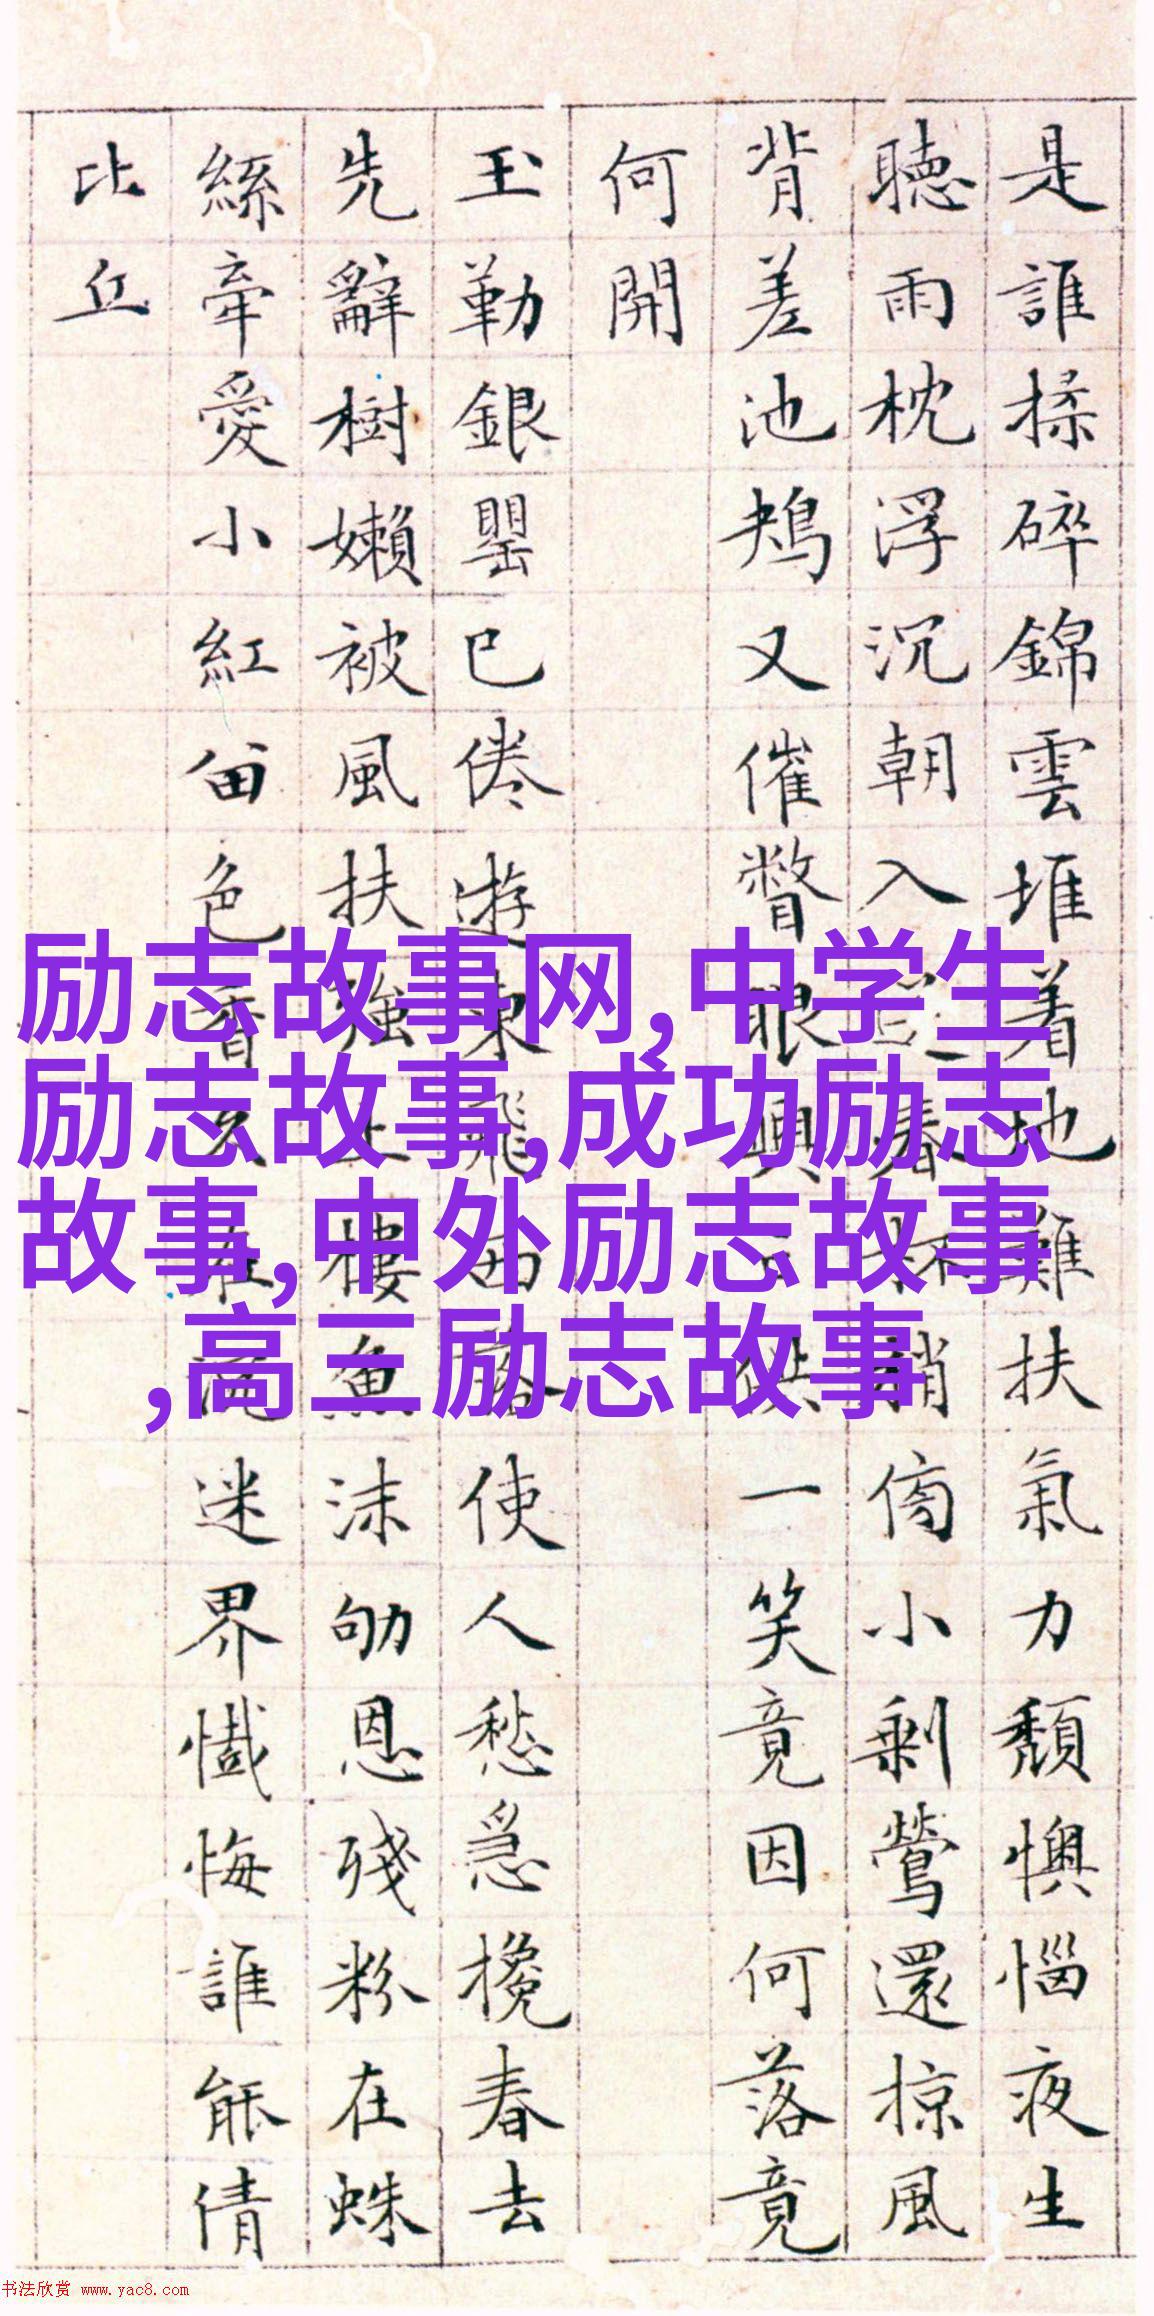 是誰揉碎錦雲堆着地難扶氣力頹懊惱夜生
聽雨枕浮沉朝入春杯梢傍小剩鶯還掠風
背差池鴂又催瞥眼興供一笑竟因何落竟
何開
玉勒銀罌已倦遊東飛西落使人愁急攙春去
先辭樹嬾被風扶強上樓魚沫劬恩殘粉在蛛
絲牽愛小紅留色香久在迷界懺悔誰能倩
比丘
励志故事网,中学生
励志故事,成功励志
故事,中外励志故事
,高三励志故事
书法欣赏 www.yac8.com